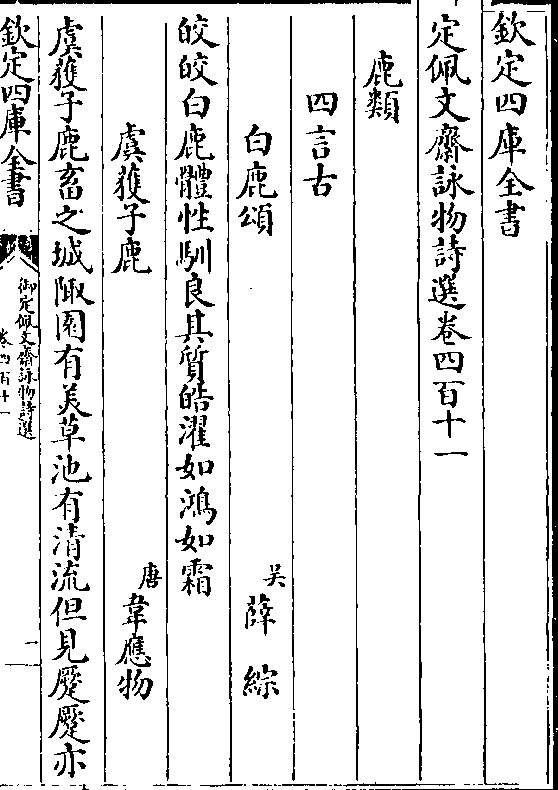 欽定四庫全書
定佩文齋詠物詩選卷四百十一
鹿類
四言古
白鹿頌 吴 薛綜
皎皎白鹿體性馴良其質皓濯如鴻如霜
虞獲子鹿 唐 韋應物
虞獲子鹿畜之城陬園有美草池有清流但見蹷蹷亦
欽定四庫全書
御定佩文齋詠物詩選
卷四百十一
一